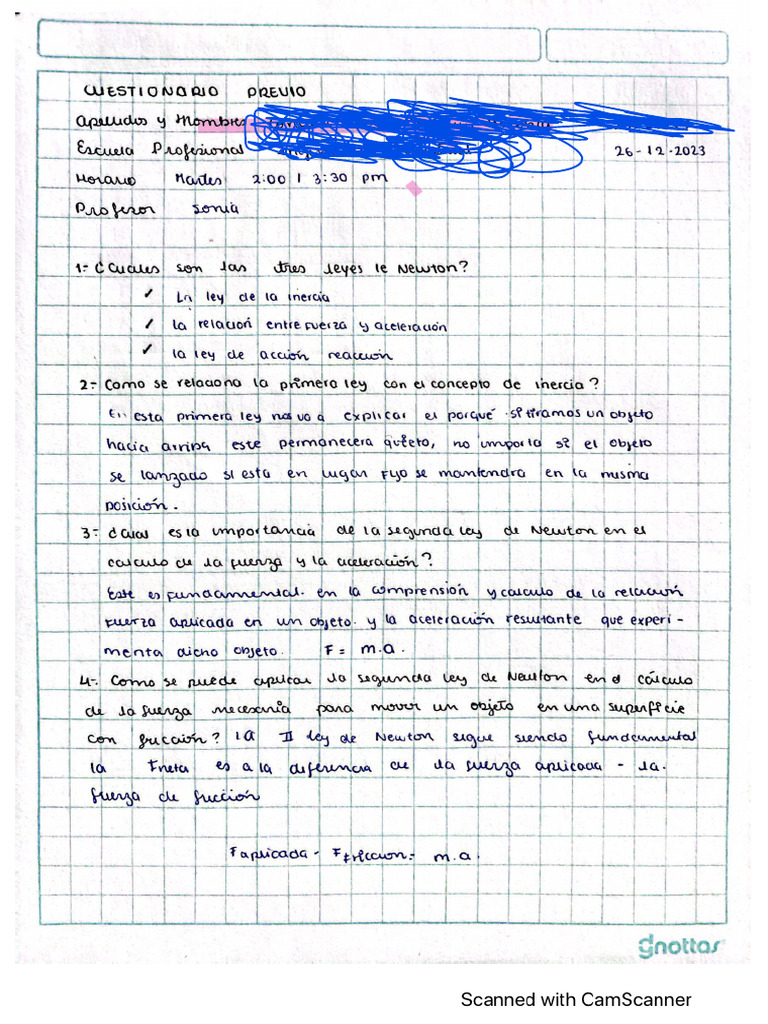 CUESTIONARIO PREVIO
Apellidos y Nombres
Escuela Profesional
26-12-2023
Horario Martes 2:00 / 3:30 pm
Profesor Sonia
1.- ¿Cuales son las tres leyes le Newton?
✓ La ley de la inercia
✓ la relación entre fuerza y aceleración
✓ la ley de acción reacción
2.- Como se relaciona la primera ley con el concepto de inercia?
En esta primera ley nos va a explicar el porqué si tiramos un objeto
hacia arriba este permanecera quieto, no importa si el objeto
se lanzado si esta en lugar fijo se mantendra en la misma
posición.
3.- ¿cual es la importancia de la segunda ley de Newton en el
calculo de la fuerza y la aceleración?
Este es fundamental en la comprensión y calculo de la relación
fuerza aplicada en un objeto y la aceleración resultante que experi-
menta dicho objeto. F = m.a.
4.- Como se puede aplicar la segunda ley de Newton en el cálculo
de la fuerza necesaria para mover un objeto en una superficie
con fricción? la II ley de Newton sigue siendo fundamental
la Fneta es a la diferencia de la fuerza aplicada - la.
fuerza de fricción
F aplicada - F fricción = m.a.
gnottas
Scanned with CamScanner